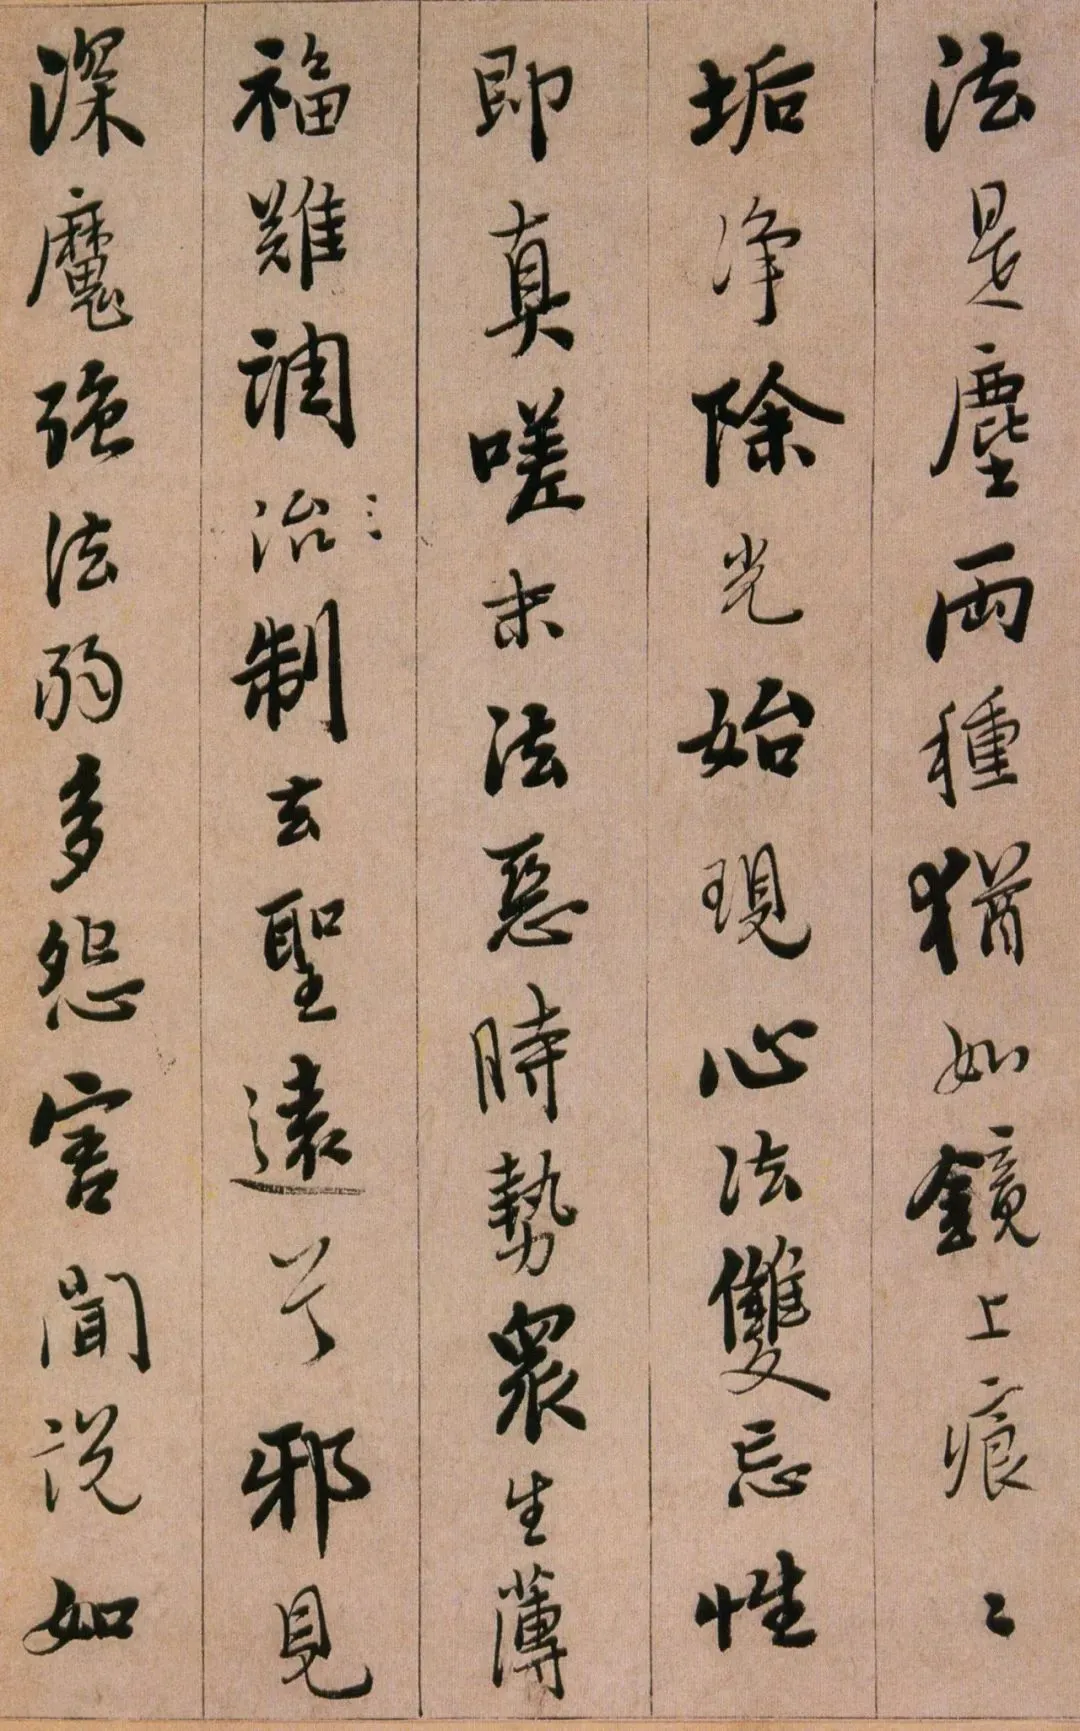 法是塵兩種猶如鏡上痕〻
垢净除光始現心法雙忘性
即真嗟末法惡時勢衆生薄
福難調治制去聖遠兮邪見
深魔强法弱多怨害聞説如